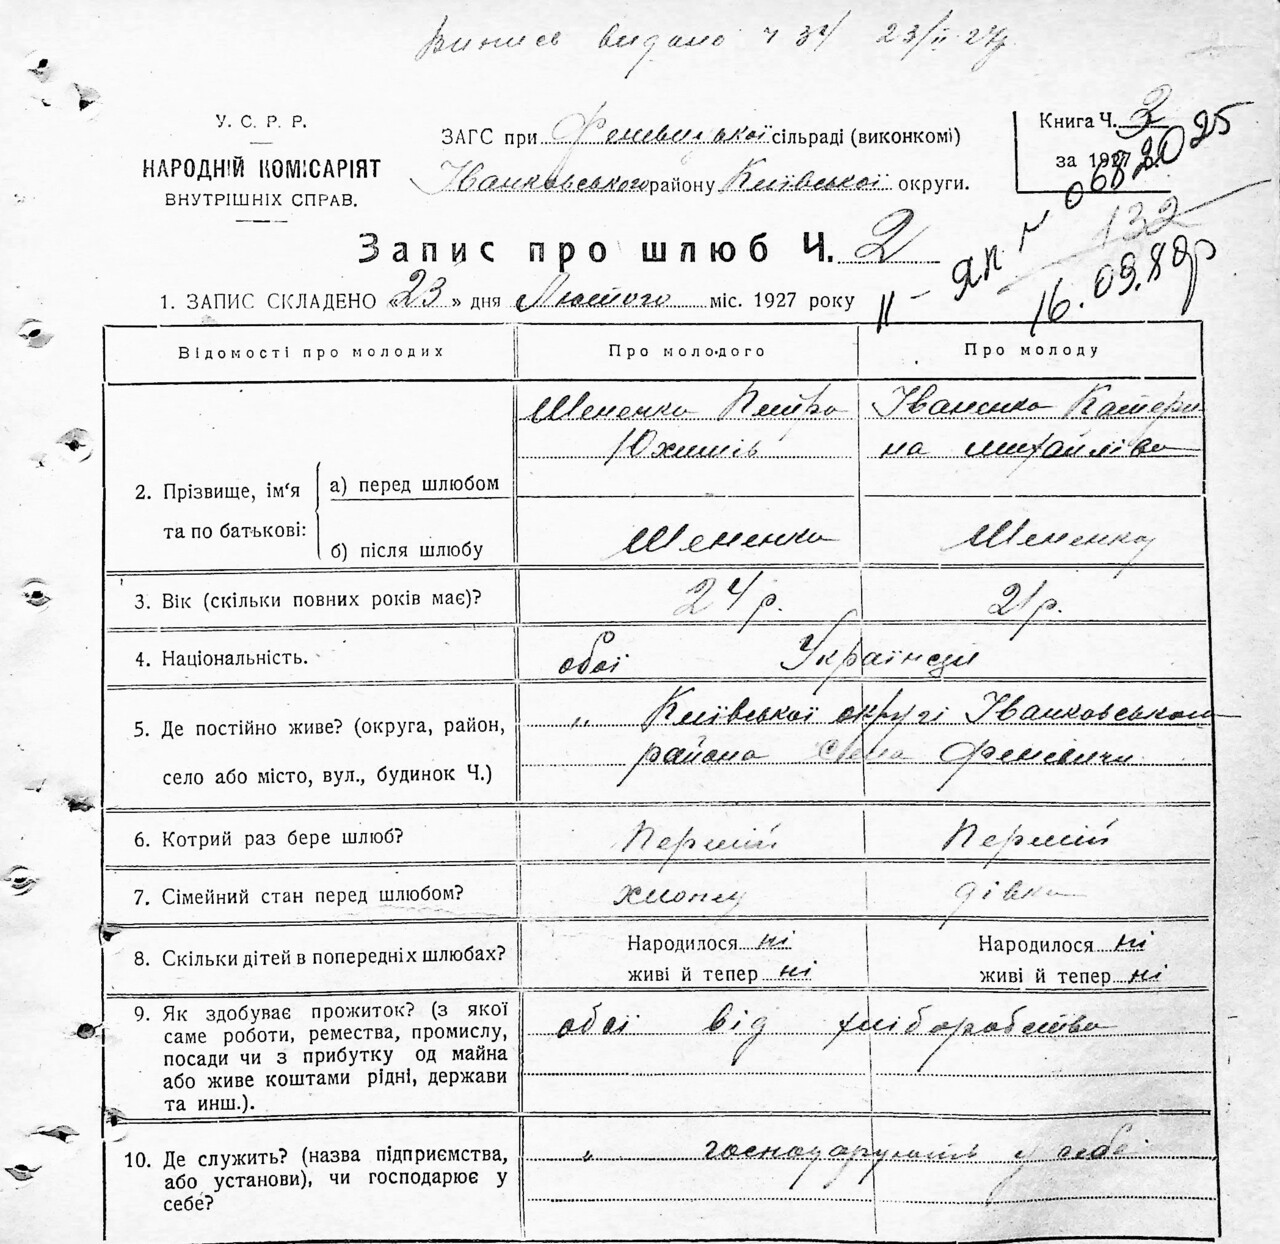 Випись видано ч 34 23/II 27р
У. С. Р. Р.
НАРОДНІЙ КОМІСАРІЯТ
ВНУТРІШНІХ СПРАВ.
ЗАГС при Феневицької сільраді (виконкомі)
Іванковського району Київської округи.
Книга Ч. 3
за 1927 р.
132
16.09.89р
Запис про шлюб Ч. 2
1. ЗАПИС СКЛАДЕНО «23» дня Лютого міс. 1927 року
Відомості про молодих
Про молодого
Про молоду
2. Прізвище, ім‘я та по батькові:
а) перед шлюбом
Петро
Юхимів
Іваненко Катери
на Михайлівна
б) після шлюбу
3. Вік (скільки повних років має)?
24 р.
21 р.
4. Національність.
обої Українци
5. Де постійно живе? (округа, район,
село або місто, вул., будинок Ч.)
„ Київської округі Іванковського
района села Феневичи
6. Котрий раз бере шлюб?
Перший
Перший
7. Сімейний стан перед шлюбом?
хлопец
дівка
8. Скільки дітей в попередніх шлюбах?
Народилося ні
живі й тепер ні
Народилося ні
живі й тепер ні
9. Як здобуває прожиток? (з якої
саме роботи, ремества, промислу,
посади чи з прибутку од майна
або живе коштами рідні, держави
та инш.).
обої від хліборобства
10. Де служить? (назва підприємства,
або установи), чи господарює у
себе?
„ господарують у себе